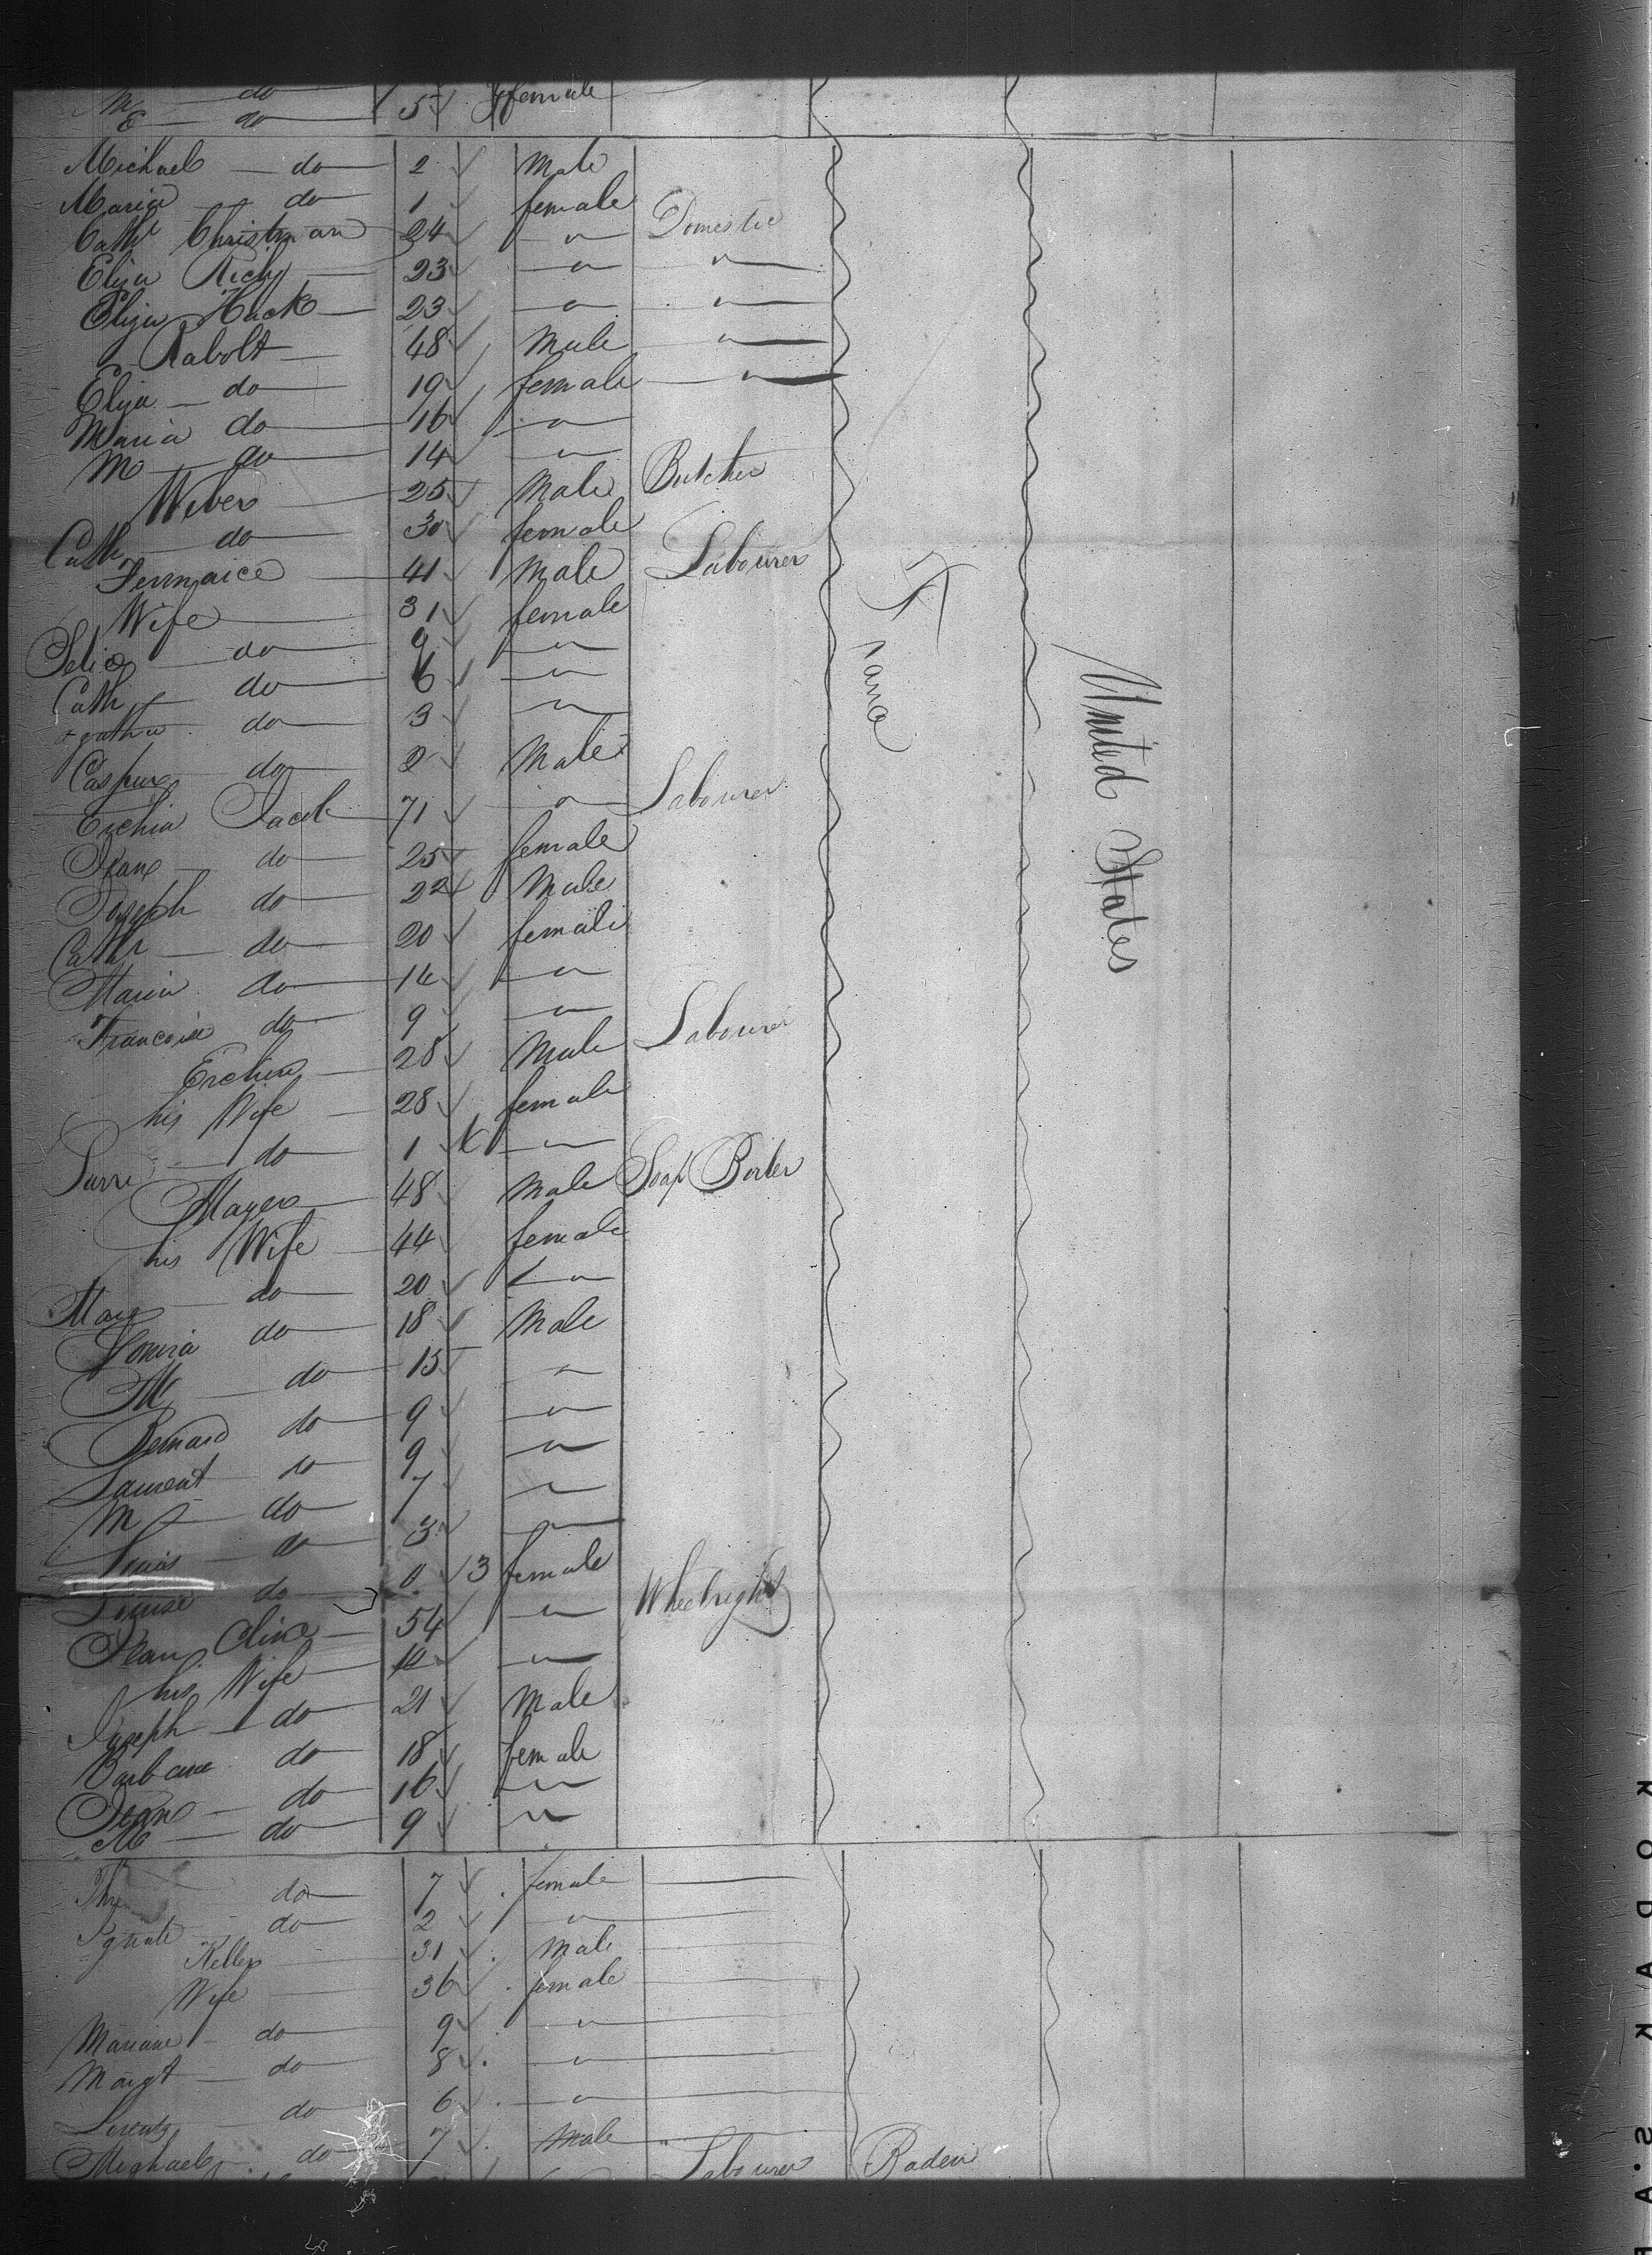 M do
E do 5 female
Michael do 2 Male
Maria do 1 female
Cath Christman 24 " Domestic
Eliza Richy 23 " "
Eliza Hack 23 " "
Rabolt 48 Male "
Eliza do 19 female "
Maria do 16 "
M do 14 "
Weber 25 Male Butcher
Cath do 30 female
41 Male Labourer
Wife 31 female
do 9 "
Cath do 6 "
Agatha do 3 "
Caspar do 2 Male
Jacob 71 " Labourer
Jean do 25 female
Joseph do 22 Male
Cath do 20 female
Maria do "
Francoise do 9 "
28 Male Labourer
his Wife 28 female
do 1 "
Mayer 48 Male Soap Boiler
his Wife 44 female
Mary do 20 "
do 18 Male
M do 15 "
Bernard do 9 "
Laurent do 9 "
M do 7 "
Louis do 3 "
Louise do 0 3 female
Jean Cline 54 " Wheelright
his Wife "
Joseph do 21 Male
Barbara do 18 female
Jean do 16 "
M do 9 "
do 7 female
do 2 "
Keller 31 Male
Wife 36 female
Mariane do 9 "
Margt do 8 "
Lorentz do 6 "
Michael do 7 Male
Labourer Baden
France
United States
KODAK S.A